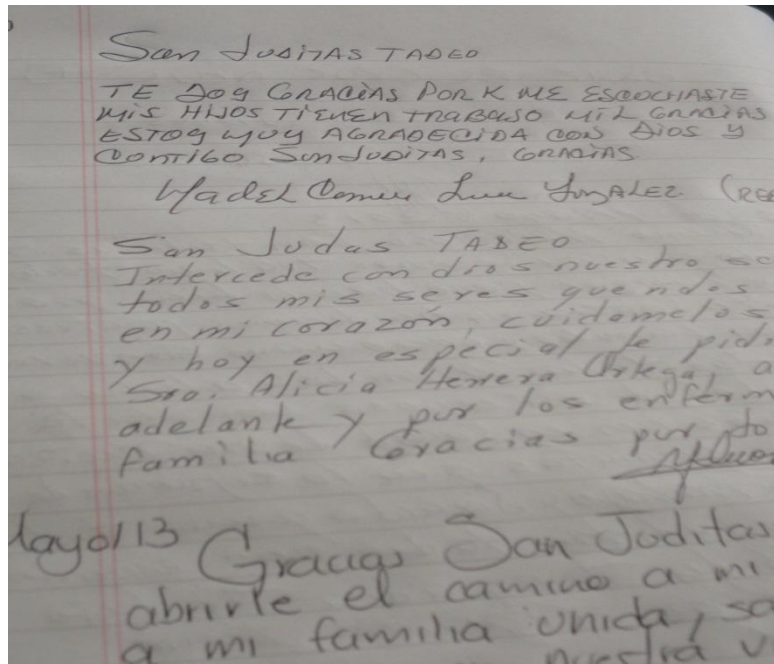 San JUDITAS TADEO
TE DOY GRACIAS POR K ME ESCUCHASTE
MIS HIJOS TIENEN TRABAJO MIL GRACIAS
ESTOY MUY AGRADECIDA CON DIOS Y
CONTIGO SAN JUDITAS, GRACIAS.
San Judas TADEO
Intercede con dios nuestro
todos mis seres queridos
en mi corazón, cuidamelos
y hoy en especial te
Sra. Alicia Herrera Ortega, a
adelante y por los
familia Gracias por
13 Gracias San Juditas
abrirle el camino a mi
a mi familia unida,